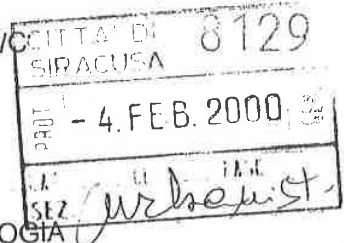 CITTA' DI 8129
SIRACUSA
PROT
- 4. FEB. 2000
SEZ. Urbanist.
OGIA